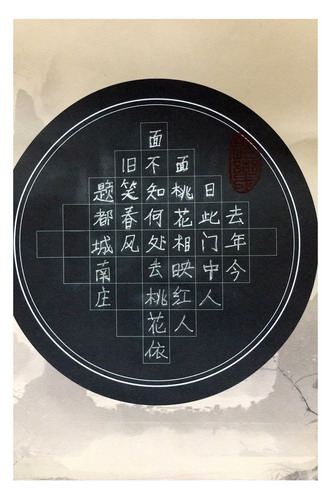 去年今
日此门中人
面桃花相映红人
面不知何处去桃花依
旧笑春风
题都城南庄